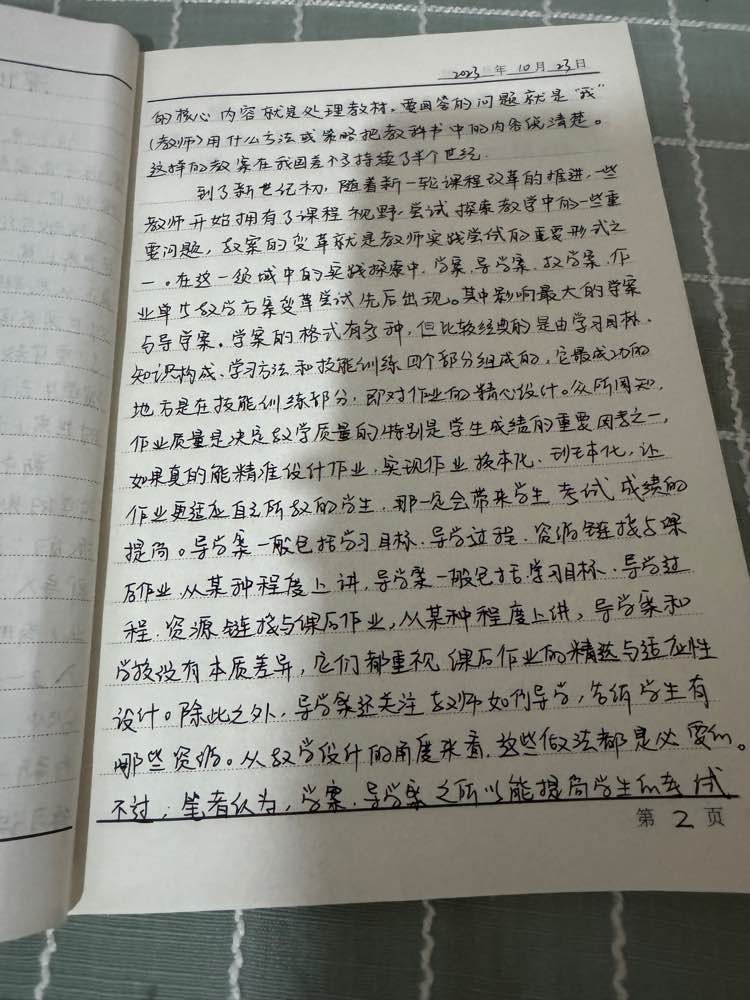 2023 年 10 月 23 日
的核心内容就是处理教材，要回答的问题就是“我”
(教师)用什么方法或策略把教科书中的内容说清楚。
这样的教案在我国差不多持续了半个世纪.
到了新世纪初，随着新一轮课程改革的推进，一些
教师开始拥有了课程视野，尝试探索教学中的一些重
要问题，教案的变革就是教师实践尝试的重要形式之
一。在这一领域中的实践探索中，学案、导学案、教学案、作
业单等教学方案变革尝试先后出现。其中影响最大的学案
与导学案。学案的格式有多种，但比较经典的是由学习目标、
知识构成、学习方法和技能训练四个部分组成的，它最成功的
地方是在技能训练部分，即对作业的精心设计。众所周知，
作业质量是决定教学质量的特别是学生成绩的重要因素之一，
如果真的能精准设计作业，实现作业校本化、班本化，让
作业更适应自己所教的学生，那一定会带来学生考试成绩的
提高。导学案一般包括学习目标、导学过程、资源链接与课
后作业，从某种程度上讲，导学案一般包括学习目标、导学过
程、资源链接与课后作业，从某种程度上讲，导学案和
学教没有本质差异，它们都重视课后作业的精选与适应性
设计。除此之外，导学案还关注教师如何导学，告诉学生有
哪些资源。从教学设计的角度来看，这些做法都是必要的。
不过，笔者认为，学案、导学案之所以能提高学生的考试
第 2 页